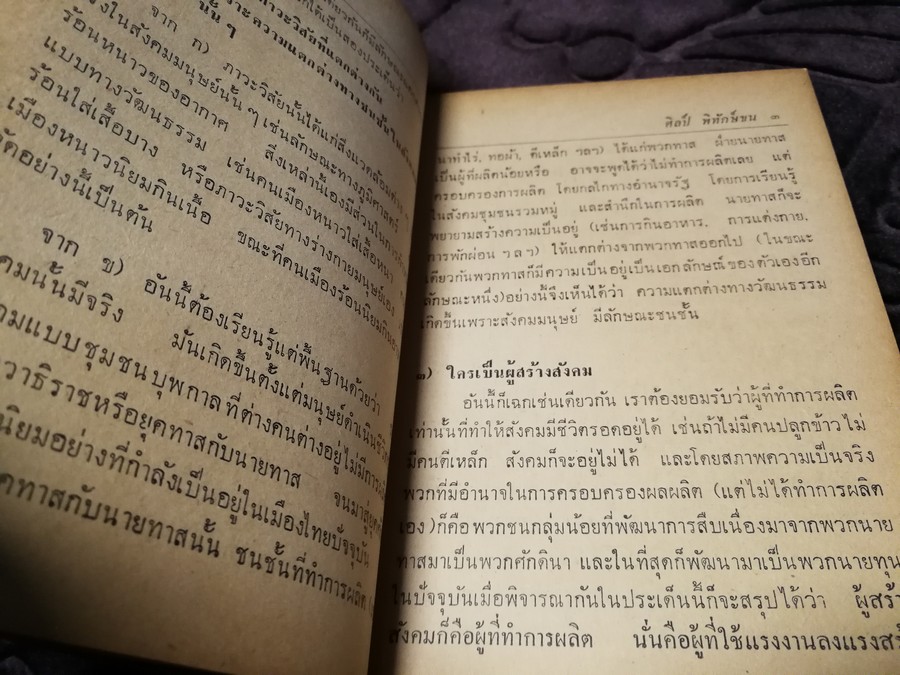 ภาวะวิสัยที่แตกต่างกัน
นั้น ๆ
จาก ก) ภาวะวิสัยนั้นได้แก่สิ่งแวดล้อมต่าง ๆ
ในสังคมมนุษย์นั้น ๆ เช่นลักษณะทางภูมิศาสตร์
ร้อนหนาวของอากาศ สิ่งเหล่านี้เองมีส่วนในการ
แบบทางวัฒนธรรม เช่นคนเมืองหนาวใส่เสื้อหนา
ร้อนใส่เสื้อบาง หรือภาวะวิสัยทางร่างกายมนุษย์เอง
เมืองหนาวนิยมกินเนื้อ ขณะที่คนเมืองร้อนนิยมกิน
อย่างนี้เป็นต้น
จาก ข) อันนี้ต้องเรียนรู้แต่พื้นฐานด้วยว่า
นั้นมีจริง มันเกิดขึ้นตั้งแต่มนุษย์ดำเนินชีวิต
ตามแบบชุมชนบุพกาลที่ต่างคนต่างอยู่ไม่มีการ
หรือยุคทาสกับนายทาส จนมาสู่ยุค
นิยมอย่างที่กำลังเป็นอยู่ในเมืองไทยปัจจุบัน
ทาสกับนายทาสนั้น ชนชั้นที่ทำการผลิต
ศิลป์ พิทักษ์ชน ๓
นาทำไร่, ทอผ้า, ตีเหล็ก ฯลฯ) ได้แก่พวกทาส ฝ่ายนายทาส
เป็นผู้ที่ผลิตน้อยหรือ อาจจะพูดได้ว่าไม่ทำการผลิตเลย แต่
ครอบครองการผลิต โดยกลไกทางอำนาจรัฐ โดยการเรียนรู้
ในสังคมชุมชนรวมหมู่ และสำนึกในการผลิต นายทาสก็จะ
พยายามสร้างความเป็นอยู่ (เช่นการกินอาหาร, การแต่งกาย,
การพักผ่อน ฯลฯ) ให้แตกต่างจากพวกทาสออกไป (ในขณะ
เดียวกันพวกทาสก็มีความเป็นอยู่เป็นเอกลักษณ์ของตัวเองอีก
ลักษณะหนึ่ง)อย่างนี้จึงเห็นได้ว่า ความแตกต่างทางวัฒนธรรม
เกิดขึ้นเพราะสังคมมนุษย์ มีลักษณะชนชั้น
๓) ใครเป็นผู้สร้างสังคม
อันนี้ก็เฉกเช่นเดียวกัน เราต้องยอมรับว่าผู้ที่ทำการผลิต
เท่านั้นที่ทำให้สังคมมีชีวิตรอดอยู่ได้ เช่นถ้าไม่มีคนปลูกข้าวไม่
มีคนตีเหล็ก สังคมก็จะอยู่ไม่ได้ และโดยสภาพความเป็นจริง
พวกที่มีอำนาจในการครอบครองผลผลิต (แต่ไม่ได้ทำการผลิต
เอง)ก็คือพวกชนกลุ่มน้อยที่พัฒนาการสืบเนื่องมาจากพวกนาย
ทาสมาเป็นพวกศักดินา และในที่สุดก็พัฒนามาเป็นพวกนายทุน
ในปัจจุบันเมื่อพิจารณากันในประเด็นนี้ก็จะสรุปได้ว่า ผู้สร้าง
สังคมก็คือผู้ที่ทำการผลิต นั่นคือผู้ที่ใช้แรงงานลงแรง